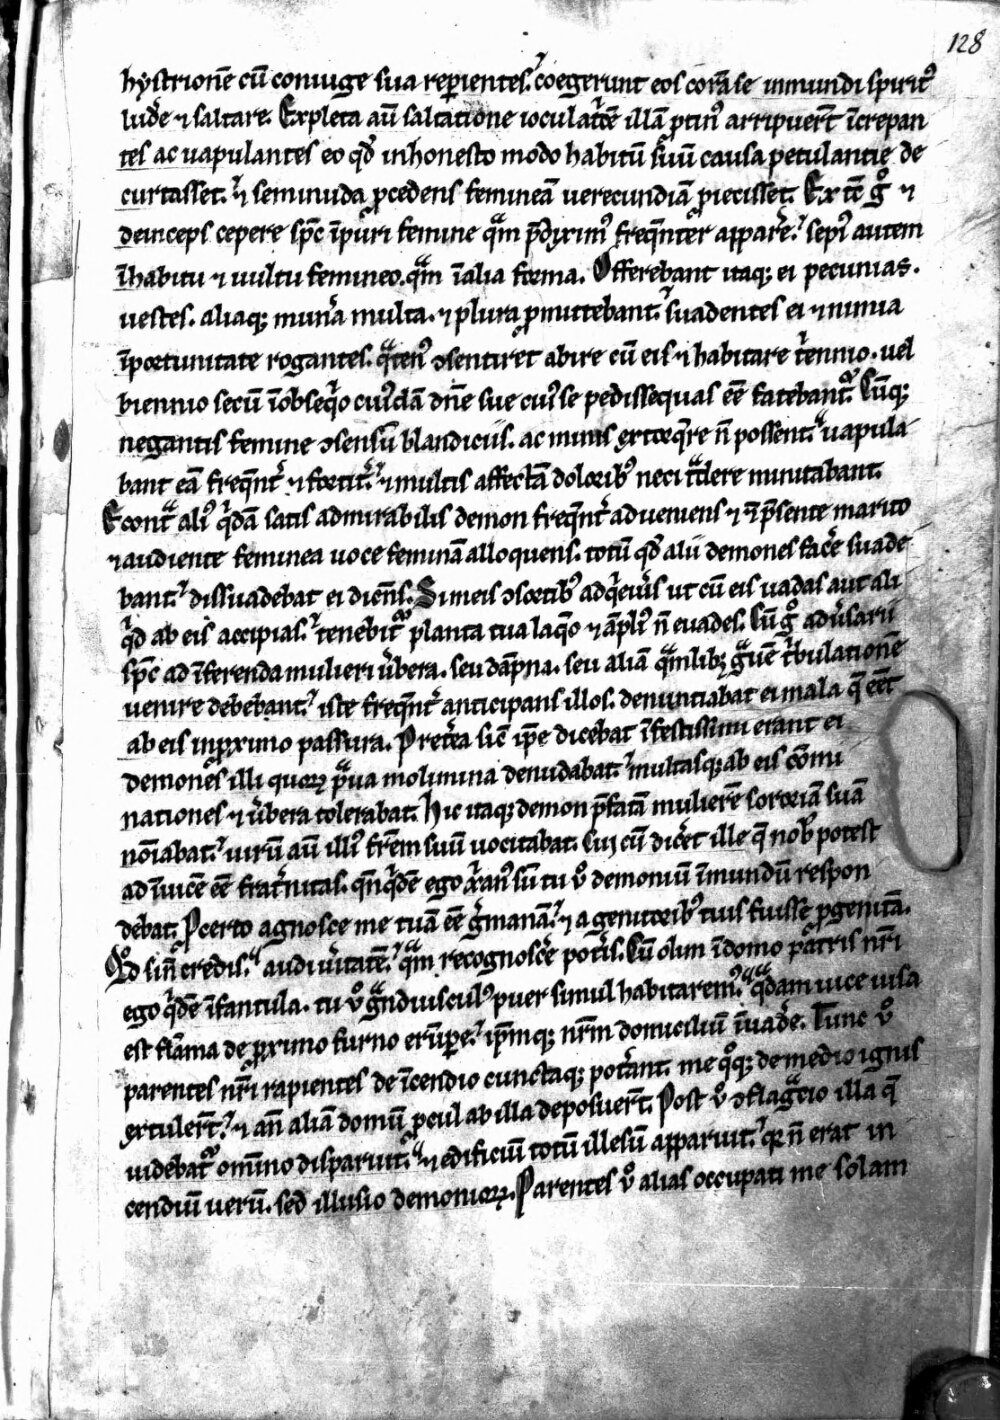 128
hystrionē cū coniuge sua reꝑientes. coegerunt eos corā se inmundi spirit᷒
ludͤe ⁊ saltare. Expleta aū saltatione ioculatͨē illā ꝓtin᷒ arripuerͭ īcrepan
tes ac uapulantes eo qd̓ inhonesto modo habitū suū causa petulantie de
curtasset. ⁊ seminuda ꝓcedens femineā uerecundiā ꝓiecisset. Ex tc̄ gͦ ⁊
deinceps cepere spc̄ īpuri femine qͣm p̄dixim᷒ freqn̄ter apparͤe. sepi᷒ autem
ī habitu ⁊ uultu femineo. qͣm ī alia forma. Offerebant itaq; ei pecunias.
uestes. aliaq; munͤa multa. ⁊ plura ꝓmittebant. suadentes ei ⁊ nimia
īportunitate rogantes. qͣten᷒ ↄsentiret abire cū eis ⁊ habitare tͥennio. uel
biennio secū ī obseqͥo cui᷒dā dn̄e sue cui᷒ se pedissequas eē fatebantͬ. Cūq;
negantis femine ↄsensū blandiciis. ac minis extorqͤre n̄ possent. uapula
bant eā freqn̄tͬ ⁊ fortitͬ. ⁊ multis affectā dolorib᷒ neci tͣdere minitabant.
Econtͣ ali᷒ qͥdā satis admirabilis demon freqn̄tͬ adueniens ⁊ n̄ p̄sente marito
⁊ audiente feminea uoce feminā alloquens. totū qd̓ alii demones facͤe suade
bant. dissuadebat ei dicn̄s. Si meis ↄsortib᷒ adqͥeuͤis ut cū eis uadas aut ali
qͥd ab eis accipias. tenebitͬ planta tua laqͦo ⁊ āpli᷒ n̄ euades. Cū gͦ aduͤsarii
spc̄ ad īferenda mulieri uͤbera. seu dāpna. seu aliā qͣmlibꝫ gͣuē tͥbulationē
uenire debebant. iste freqn̄tͬ anticipans illos. denuntiabat ei mala q̄ eēt
ab eis in ꝓximo passura. Pretͤea sic̄ ip̄e dicebat īfestissimi erant ei
demones illi quoꝝ pͣua molimina denudabat. multasq; ab eis cōmi
nationes ⁊ uͤbera tolerabat. Hic itaq; demon p̄fatā mulierē sororiā suā
noīabat. uirū aū illi᷒ frēm suū uocitabat. Cui cū dicͤet ille q̄ nob᷒ potest
ad īuicē eē fratͤnitas. qn̄qͥdē ego xͥan᷒ sū tu uͦ demoniū īmundū respon
debat. Ꝓcerto agnosce me tuā eē gͤmanā. ⁊ a genitorib᷒ tuis fuisse ꝓgenitā.
Qͦd si n̄ credis. audi uͤitatē. qͣm recognoscͤe potͤis. Cū olim ī domo patris nrī
ego qͥdē īfantula. tu uͦ gͣndiuscul᷒ puer simul habitarem᷒. qͣdam uice uisa
est flāma de ꝓximo furno erūpͤe. ipm̄q; nrm̄ domiciliū īuadͤe. Tunc uͦ
parentes nrī rapientes de īcendio cunctaq; potͤant. me qͦq; de medio ignis
extulerͭ. ⁊ an̄ aliā domū ꝓcul ab illa deposuerͭ. Post uͦ ↄflagͣtio illa q̄
uidebatͬ omīno disparuit. ⁊ edificiū totū illesū apparuit. qͥ n̄ erat in
cendiū uerū. sed illusio demonioꝝ. Parentes uͦ alias occupati me solam